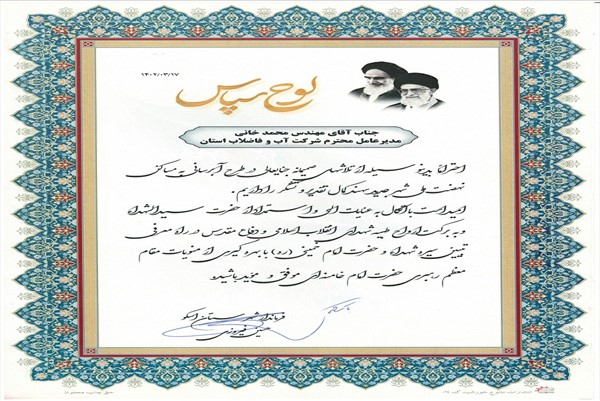 ۱۴۰۲/۰۳/۱۷
لوح سپاس
جناب آقای مهندس محمد خانی
مدیرعامل محترم شرکت آب و فاضلاب استان
احتراماً بدینوسیله از تلاشهای صمیمانه جنابعالی در طرح آبرسانی به مساکن
نهضت ملی شهر جدید سهند کمال تقدیر و تشکر را داریم.
امید است با اتکال به عنایات الهی و استمداد از حضرت سیدالشهداء
و به برکت ارواح طیبه شهدای انقلاب اسلامی و دفاع مقدس در راه معرفی
تبیین سیره شهداء و حضرت امام خمینی (ره) با بهره گیری از منویات مقام
معظم رهبری حضرت امام خامنه‌ای موفق و مؤید باشید.
فرماندار شهرستان اسکو